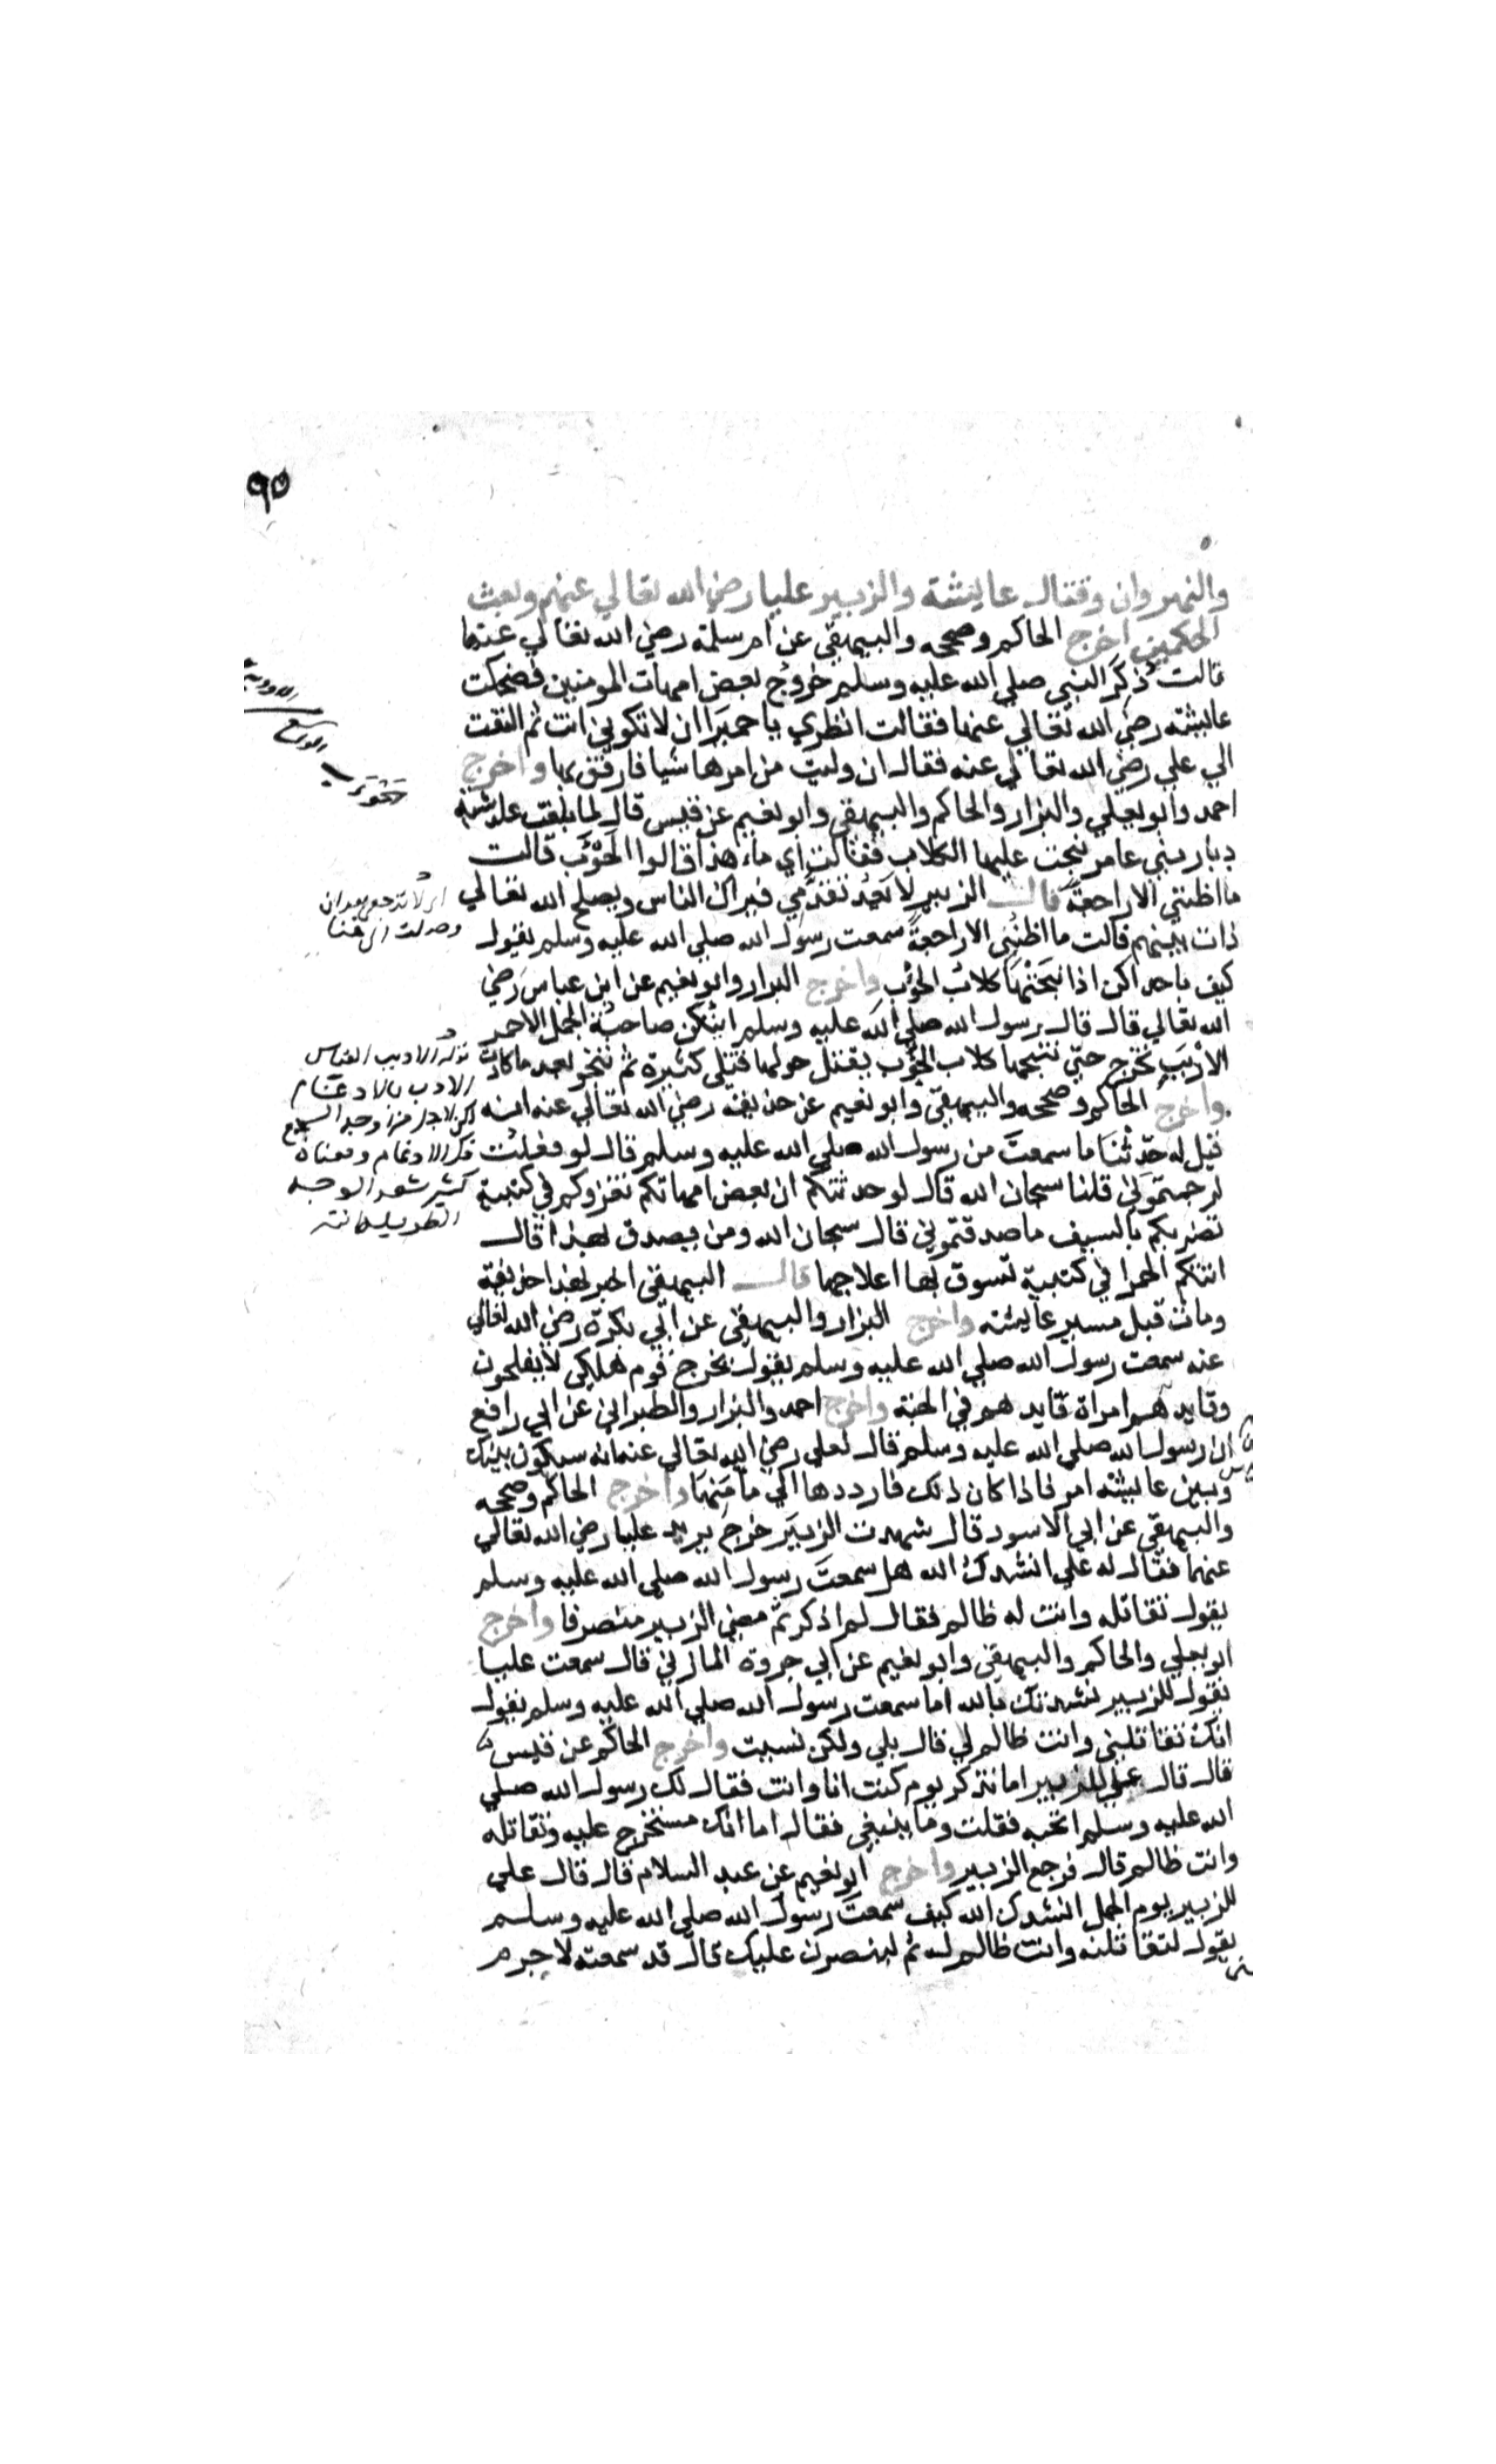 ٩٥
والنهروان وقتال عايشة والزبير عليا رضي الله تعالي عنهم وبعث
الحكمين اخرج الحاكم وصححه والبيهقي عن ام سلمة رضي الله تعالي عنها
قالت ذكر النبي صلي الله عليه وسلم خروج بعض امهات المومنين فضحكت
عايشة رضي الله تعالي عنها فقالت انظري يا حميرا ان لا تكوني انت ثم التفت
الي علي رضي الله تعالي عنه فقال ان وليت من امرها شيا فارفق بها واخرج
احمد وابو يعلي والبزار والحاكم والبيهقي وابو نعيم عن قيس قال لما بلغت عايشة
ديار بني عامر نبحت عليها الكلاب فقالت اي ماء هذا قالوا الحوئب قالت
ما اظنني الا راجعة قال الزبير لا بعد تقدمي فيراك الناس ويصلح الله تعالي
ذات بينهم قالت ما اظنني الا راجعة سمعت رسول الله صلي الله عليه وسلم يقول
كيف باحداكن اذا نبحتها كلاب الحوئب واخرج البزار وابو نعيم عن ابن عباس رضي
الله تعالي قال قال رسول الله صلي الله عليه وسلم ايتكن صاحبة الجمل الاحمر
الادبب تخرج حتي تنبحها كلاب الحوئب يقتل حولها قتلي كثيرة ثم تنجو بعد ما كادت
واخرج الحاكم وصححه والبيهقي وابو نعيم عن حذيفة رضي الله تعالي عنه انه
قيل له حدثنا ما سمعت من رسول الله صلي الله عليه وسلم قال لو فعلت
لرجمتموني قلنا سبحان الله قال لو حدثتكم ان بعض امهاتكم تغزوكم في كتيبة
تضربكم بالسيف ما صدقتموني قال سبحان الله ومن يصدق بهذا قال
اتتكم الحمرا في كتيبة تسوق بها اعلاجها قال البيهقي اخبر بهذا حذيفة
ومات قبل مسير عايشة واخرج البزار والبيهقي عن ابي بكرة رضي الله تعالي
عنه سمعت رسول الله صلي الله عليه وسلم يقول يخرج قوم هلكي لا يفلحون
وقايدهم امراة قايدهم في الجنة واخرج احمد والبزار والطبراني عن ابي رافع
ان رسول الله صلي الله عليه وسلم قال لعلي رضي الله تعالي عنه انه سيكون بينك
وبين عايشة امر فاذا كان ذلك فارددها الي مامنها واخرج الحاكم وصححه
والبيهقي عن ابي الاسود قال شهدت الزبير خرج يريد عليا رضي الله تعالي
عنهما فقال له علي انشدك الله هل سمعت رسول الله صلي الله عليه وسلم
يقول تقاتله وانت له ظالم فقال لم اذكر ثم مضي الزبير منصرفا واخرج
ابو يعلي والحاكم والبيهقي وابو نعيم عن ابي جروة المازني قال سمعت عليا
يقول للزبير نشدتك بالله اما سمعت رسول الله صلي الله عليه وسلم يقول
انك تقاتلني وانت ظالم لي قال بلي ولكن نسيت واخرج الحاكم عن قيس
قال قال علي للزبير اما تذكر يوم كنت انا وانت فقال لك رسول الله صلي
الله عليه وسلم اتحبه فقلت وما ينبغي فقال اما انك ستخرج عليه وتقاتله
وانت ظالم قال فرجع الزبير واخرج ابو نعيم عن عبد السلام قال قال علي
للزبير يوم الجمل انشدك الله كيف سمعت رسول الله صلي الله عليه وسلم
يقول لتقاتلنه وانت ظالم له ثم لينصرن عليك قال قد سمعته لا جرم
اي لا ترجعي بعد ان
وصلت الي هنا
قوله الادبب القياس
الادب بالادغام
لكن لاجل مزاوجة
فك الادغام ومعناه
كثير شعر الوجه